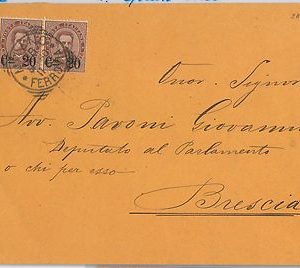 Cmi 20 Cmi 20
FERRO
Onor. Signor
Avv. Pavoni Giovanni
Deputato al Parlamento
o chi per esso
Brescia